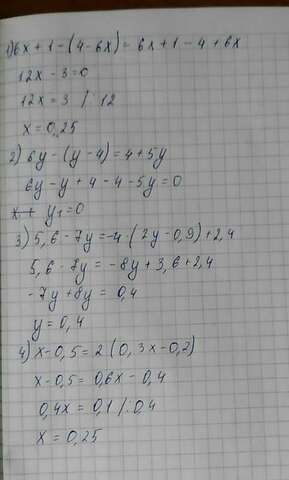 1) 6x + 1 - (4 - 6x) = 6x + 1 - 4 + 6x
12x - 3 = 0
12x = 3 / 12
x = 0,25
2) 6y - (y - 4) = 4 + 5y
6y - y + 4 - 4 - 5y = 0
y = 0
3) 5,6 - 7y = -4 (2y - 0,9) + 2,4
5,6 - 7y = -8y + 3,6 + 2,4
-7y + 8y = 0,4
y = 0,4
4) x - 0,5 = 2 (0,3x - 0,2)
x - 0,5 = 0,6x - 0,4
0,4x = 0,1 /:0,4
x = 0,25